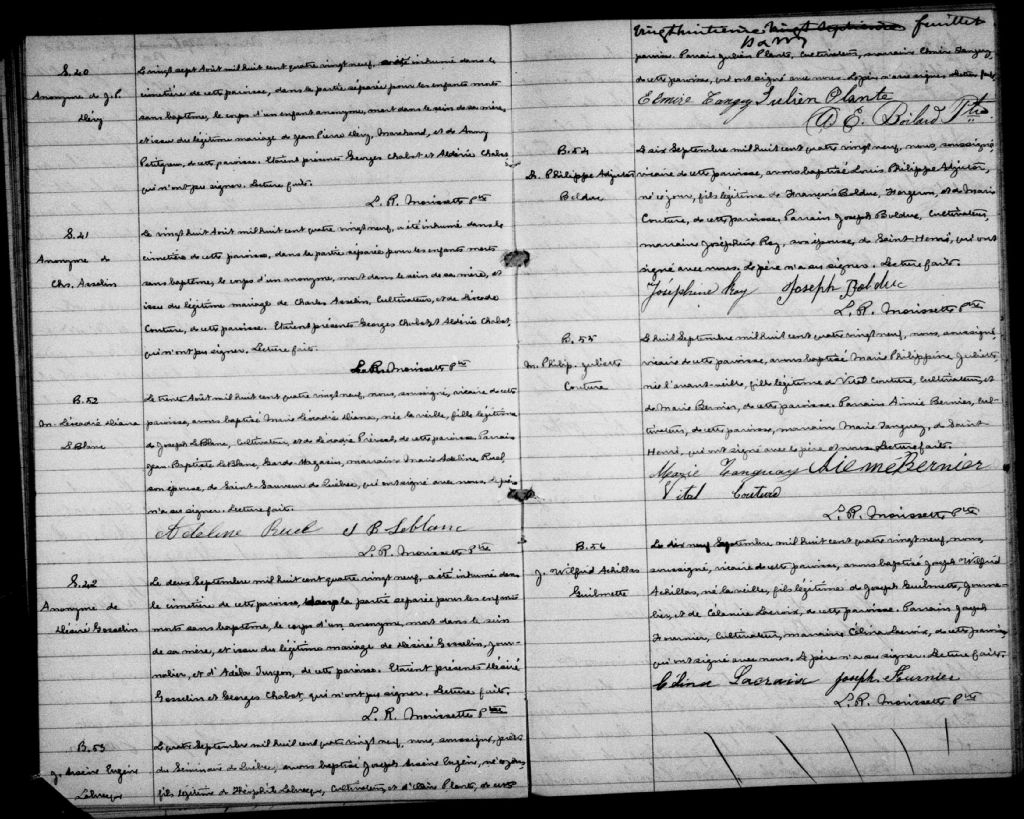 S. 40
Anonyme de J. P.
Déry
Le vingt sept Août mil huit cent quatre vingt neuf, a été inhumé dans le
cimetière de cette paroisse, dans la partie séparée pour les enfants morts
sans baptême, le corps d'un enfant anonyme, mort dans le sein de sa mère,
et issu du légitime mariage de Jean Pierre Déry, Marchand, et de Anny
Petitgrew, de cette paroisse. Etaient présents Georges Chabot et Aldéric Chabot
qui n'ont pu signer. Lecture faite.
L. R. Morissette Ptre
S. 41
Anonyme de
Chs. Asselin
Le vingt huit Août mil huit cent quatre vingt neuf, a été inhumé dans le
cimetière de cette paroisse, dans la partie séparée pour les enfants morts
sans baptême, le corps d'un anonyme, mort dans le sein de sa mère, et
issu du légitime mariage de Charles Asselin, Cultivateur, et de Léocadie
Couture, de cette paroisse. Etaient présents Georges Chabot et Aldéric Chabot,
qui n'ont pu signer. Lecture faite.
L. R. Morissette Ptre
B. 52
M. Léocadie Diana
LeBlanc
Le trente Août mil huit cent quatre vingt neuf, nous, soussigné, vicaire de cette
paroisse, avons baptisé Marie Léocadie Diana, née la veille, fille légitime
de Joseph LeBlanc, Cultivateur, et de Léocadie Prévost, de cette paroisse. Parrain
Jean Baptiste LeBlanc, Garde-Magasin, marraine Marie Adeline Ruel,
son épouse, de Saint-Sauveur de Québec, qui ont signé avec nous. Le père
n'a su signer. Lecture faite.
Adeline Ruel J B Leblanc
L. R. Morissette Ptre
S. 42
Anonyme de
Désiré Gosselin
Le deux Septembre mil huit cent quatre vingt neuf, a été inhumé dans
le cimetière de cette paroisse, dans la partie séparée pour les enfants
morts sans baptême, le corps d'un anonyme, mort dans le sein
de sa mère, et issu du légitime mariage de Désiré Gosselin, Jour-
nalier, et d'Adèle Turgeon, de cette paroisse. Etaient présents Désiré
Gosselin et Georges Chabot, qui n'ont pu signer. Lecture faite.
L. R. Morissette Ptre
B. 53
J. Arsène Eugène
Labrecque
Le quatre Septembre mil huit cent quatre vingt neuf, nous, soussigné, prêtre
du Séminaire de Québec, avons baptisé Joseph Arsène Eugène, né ce jour,
fils légitime de Théophile Labrecque, Cultivateur, et d'Elise Plante, de cette
Vingt huitième Vingt septième feuillet
parrain Julien Plante, Cultivateur, marraine Elmire Tanguay
de cette paroisse, qui ont signé avec nous. Le père n'a su signer. Lecture faite
Elmire Tanguy Julien Plante
A E. Boilard Ptre
B. 54
L. Philippe Adjutor
Bolduc
Le six Septembre mil huit cent quatre vingt neuf, nous, soussigné
vicaire de cette paroisse, avons baptisé Louis Philippe Adjutor,
né ce jour, fils légitime de François Bolduc, Forgeron, et de Marie
Couture, de cette paroisse. Parrain Joseph Bolduc, Cultivateur,
marraine Joséphine Roy, son épouse, de Saint-Henri, qui ont
signé avec nous. Le père n'a su signer. Lecture faite.
Joséphine Roy Joseph Bolduc
L. R. Morissette Ptre
B. 55
M. Philip. Juliette
Couture
Le huit Septembre mil huit cent quatre vingt neuf, nous, soussigné,
vicaire de cette paroisse, avons baptisé Marie Philippine Juliette,
née l'avant-veille, fille légitime de Vital Couture, Cultivateur, et
de Marie Bernier, de cette paroisse. Parrain Aimé Bernier, Cul-
tivateur, de cette paroisse, marraine Marie Tanguay, de Saint-
Henri, qui ont signé avec le père et nous. Lecture faite.
Marie Tanguay Aiemé Bernier
Vital Couture
L. R. Morissette Ptre
B. 56
J. Wilfrid Achillas
Guilmette
Le dix neuf Septembre mil huit cent quatre vingt neuf, nous,
soussigné, vicaire de cette paroisse, avons baptisé Joseph Wilfrid
Achillas, né la veille, fils légitime de Joseph Guilmette, Journa-
lier, et de Célanire Lacroix, de cette paroisse. Parrain Joseph
Fournier, Cultivateur, marraine Célina Lacroix, de cette paroisse,
qui ont signé avec nous. Le père n'a su signer. Lecture faite.
Célina Lacroix Joseph Fournier
L. R. Morissette Ptre